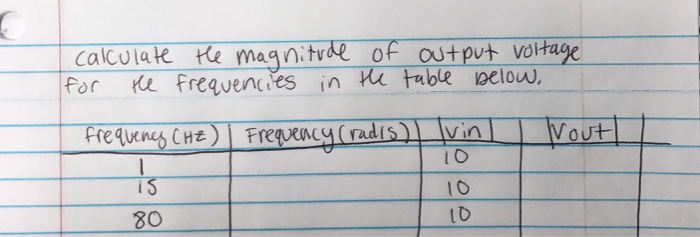 calculate the magnitude of output voltage
for the frequencies in the table below.
frequency (HZ) | Frequency (rad/s) | |Vin| | |Vout| |
1 10
15 10
80 10